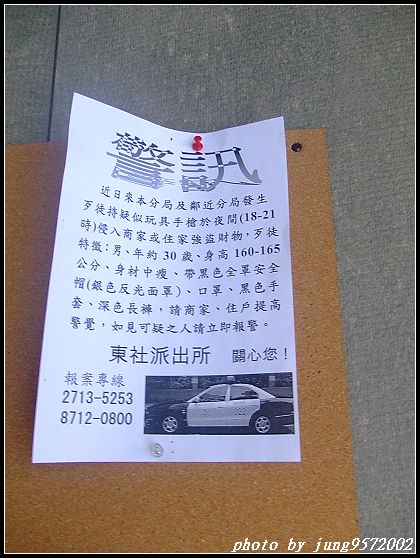 警訊
近日來本分局及鄰近分局發生
歹徒持疑似玩具手槍於夜間(18-21
時)侵入商家或住家強盜財物，歹徒
特徵：男、年約 30 歲、身高 160-165
公分、身材中瘦、帶黑色全罩安全
帽(銀色反光面罩)、口罩、黑色手
套、深色長褲，請商家、住戶提高
警覺，如見可疑之人請立即報警。
東社派出所 關心您！
報案專線
2713-5253
8712-0800
photo by jung9572002